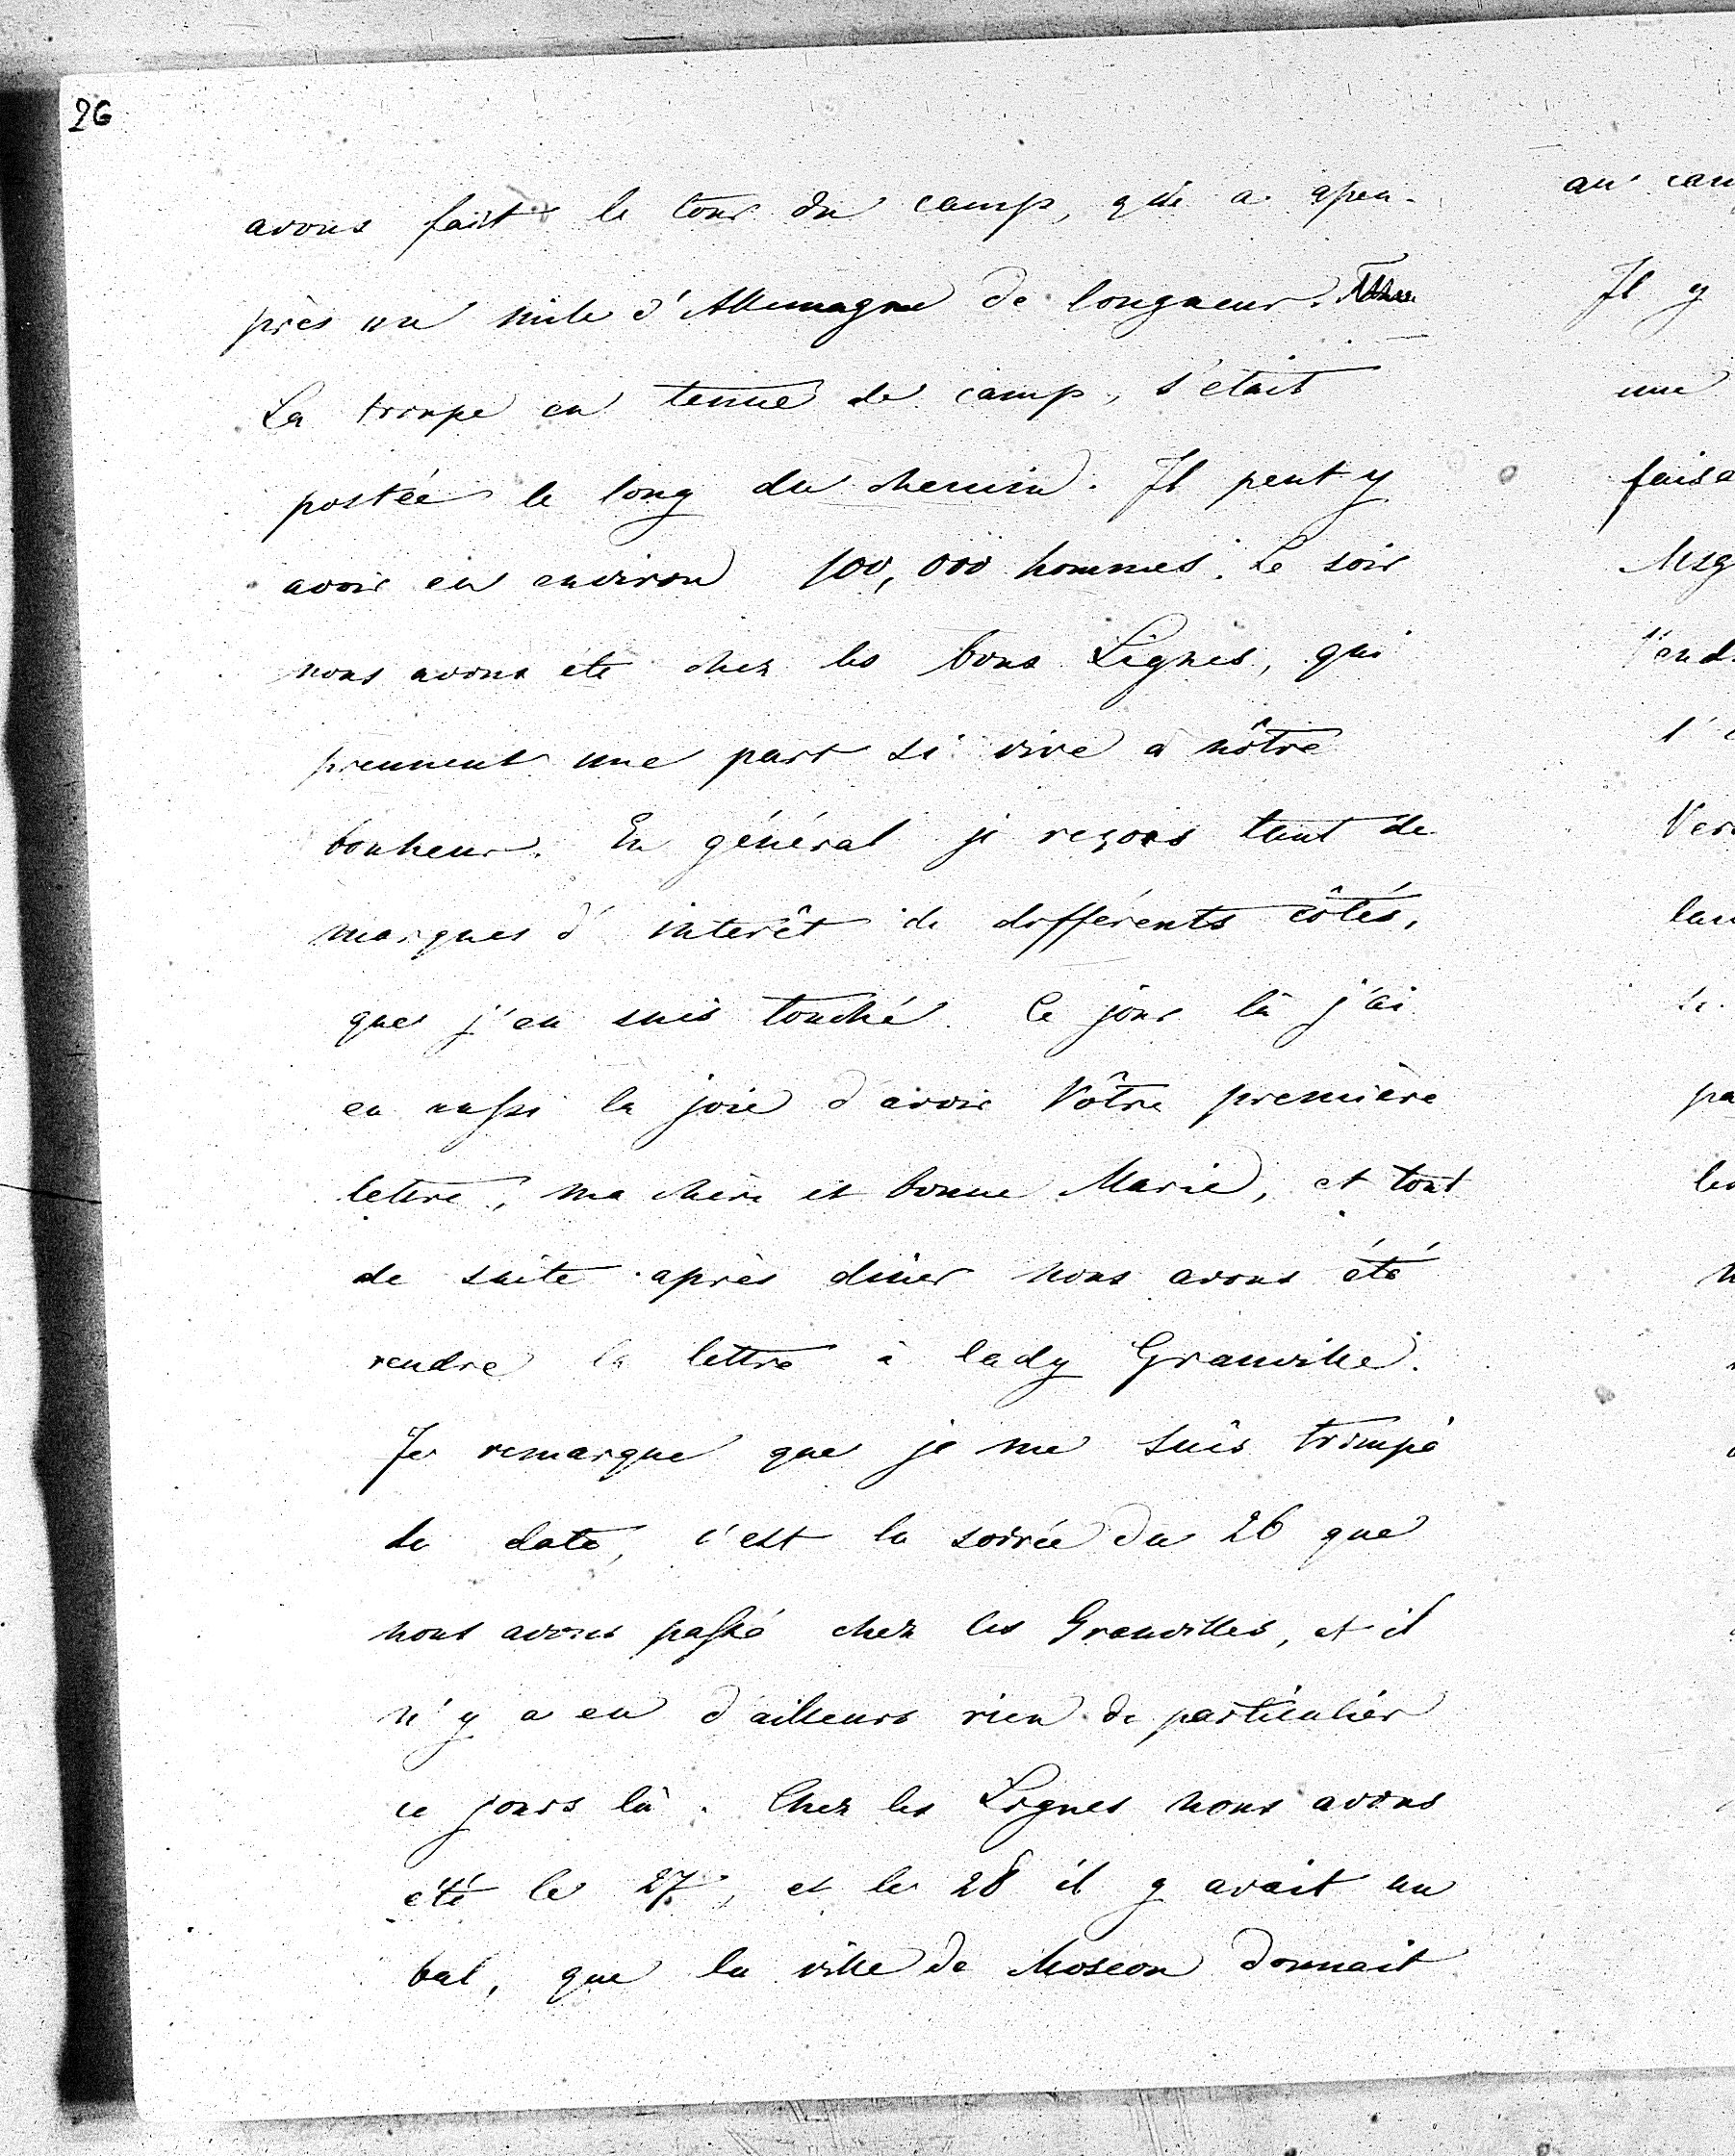 26
avons fait le tour du camp, qui a apeu-
près un mile d'Allemagne de longueur.
La troupe en tenue de camp, s'était
postée le long du chemin. Il peut y
avoir eu environ 100,000 hommes. Le soir
nous avons été chez les bons Lignes, qui
prennent une part si vive à nôtre
bonheur. En général je reçois tant de
marques d'interêt de différents côtés,
que j'en suis touché. Ce jour là j'ai
eu aussi la joie d'avoir Vôtre première
lettre, ma chère et bonne Marie, et tout
de suite après diner nous avons été
rendre la lettre à lady Granville.
Je remarque que je me suis trompé
de date, c'est la soirée du 26 que
nous avons passé chez les Granvilles, et il
n'y a eu d'ailleurs rien de particulier
ce jours là. Chez les Lignes nous avons
été le 27, et le 28 il y avait un
bal, que la ville de Moscou donnait
au cam
Il y
une
faisa
Msg
l'end
Ver
pa